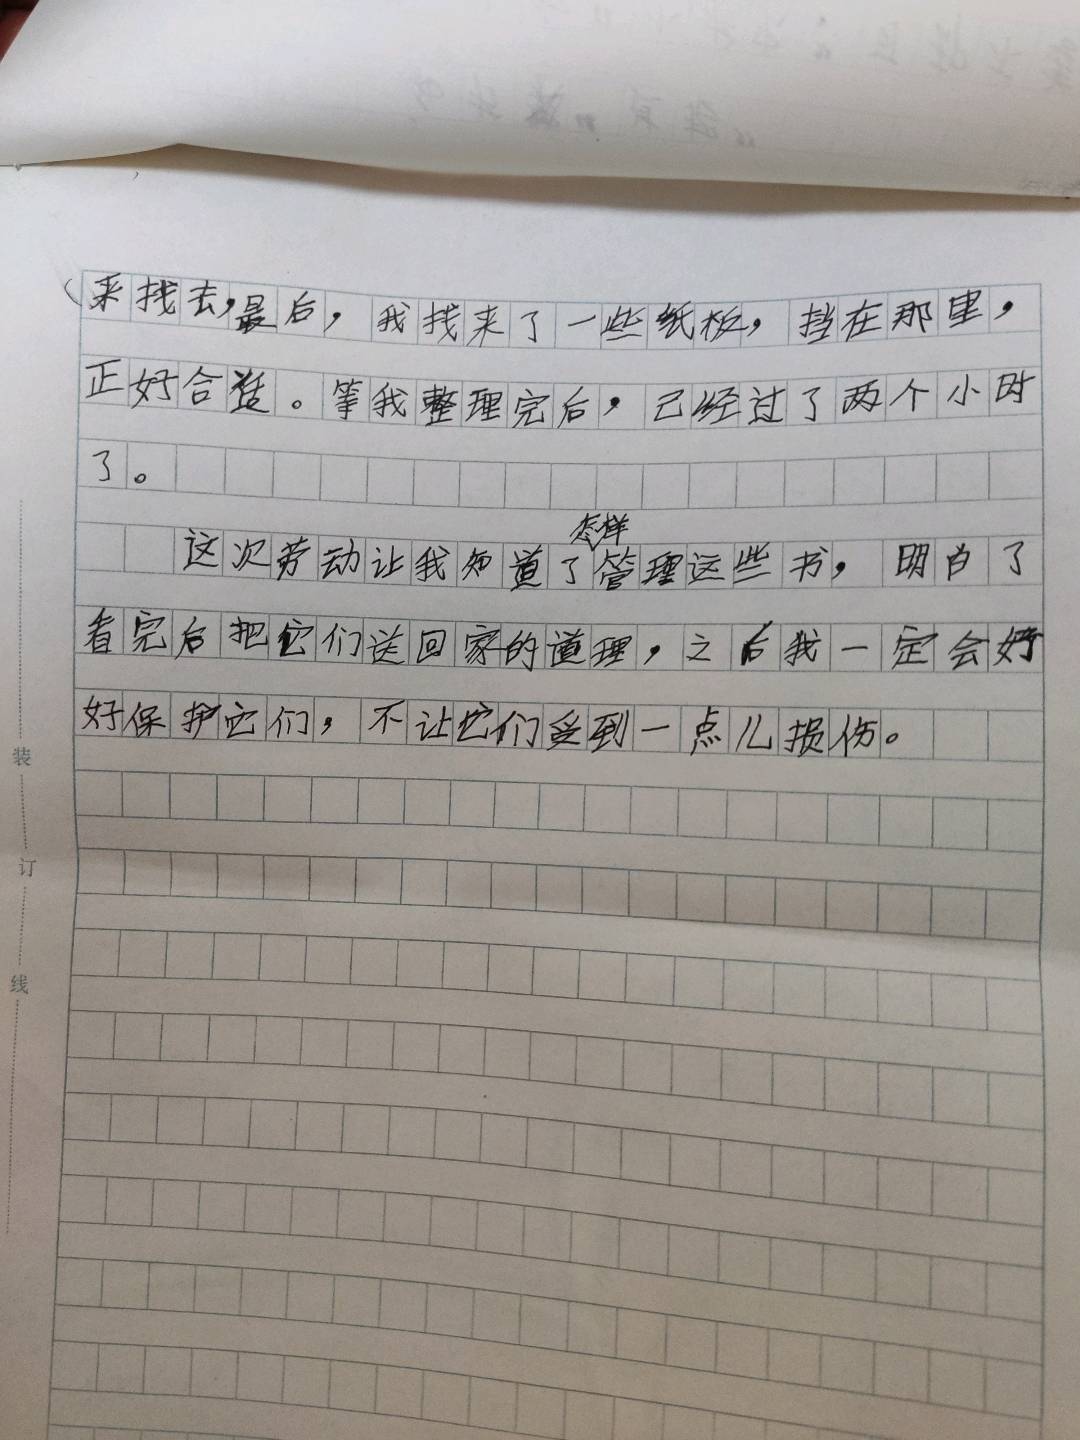 来找去,最后,我找来了一些纸板,挡在那里,
正好合适。等我整理完后,已经过了两个小时
了。
这次劳动让我知道了怎样管理这些书,明白了
看完后把它们送回家的道理,之后我一定会好
好保护它们,不让它们受到一点儿损伤。
装
订
线